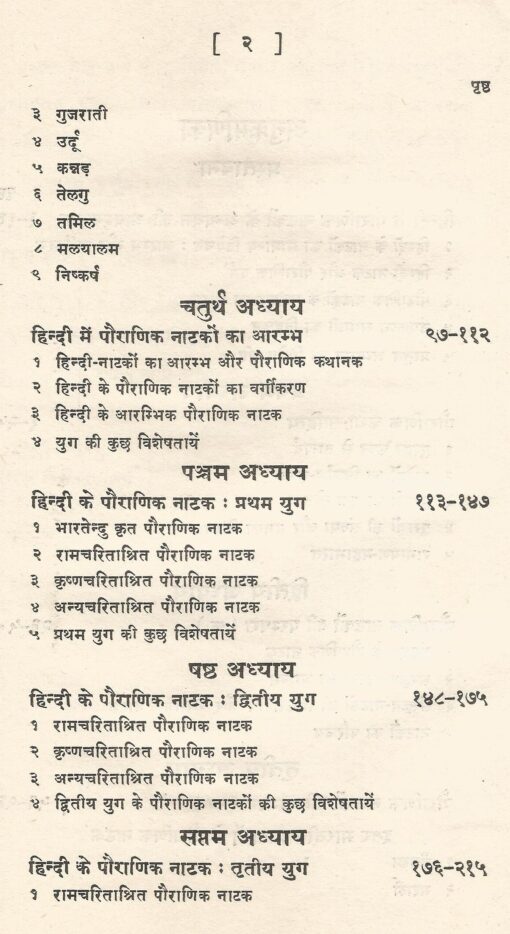 [ २ ]
पृष्ठ
३ गुजराती
४ उर्दू
५ कन्नड़
६ तेलगु
७ तमिल
८ मलयालम
९ निष्कर्ष
चतुर्थ अध्याय
हिन्दी में पौराणिक नाटकों का आरम्भ ९७-११२
१ हिन्दी-नाटकों का आरम्भ और पौराणिक कथानक
२ हिन्दी के पौराणिक नाटकों का वर्गीकरण
३ हिन्दी के आरम्भिक पौराणिक नाटक
४ युग की कुछ विशेषतायें
पञ्चम अध्याय
हिन्दी के पौराणिक नाटक : प्रथम युग ११३-१४७
१ भारतेन्दु कृत पौराणिक नाटक
२ रामचरिताश्रित पौराणिक नाटक
३ कृष्णचरिताश्रित पौराणिक नाटक
४ अन्यचरिताश्रित पौराणिक नाटक
५ प्रथम युग की कुछ विशेषतायें
षष्ठ अध्याय
हिन्दी के पौराणिक नाटक : द्वितीय युग १४८-१७५
१ रामचरिताश्रित पौराणिक नाटक
२ कृष्णचरिताश्रित पौराणिक नाटक
३ अन्यचरिताश्रित पौराणिक नाटक
४ द्वितीय युग के पौराणिक नाटकों की कुछ विशेषतायें
सप्तम अध्याय
हिन्दी के पौराणिक नाटक : तृतीय युग १७६-२१५
१ रामचरिताश्रित पौराणिक नाटक